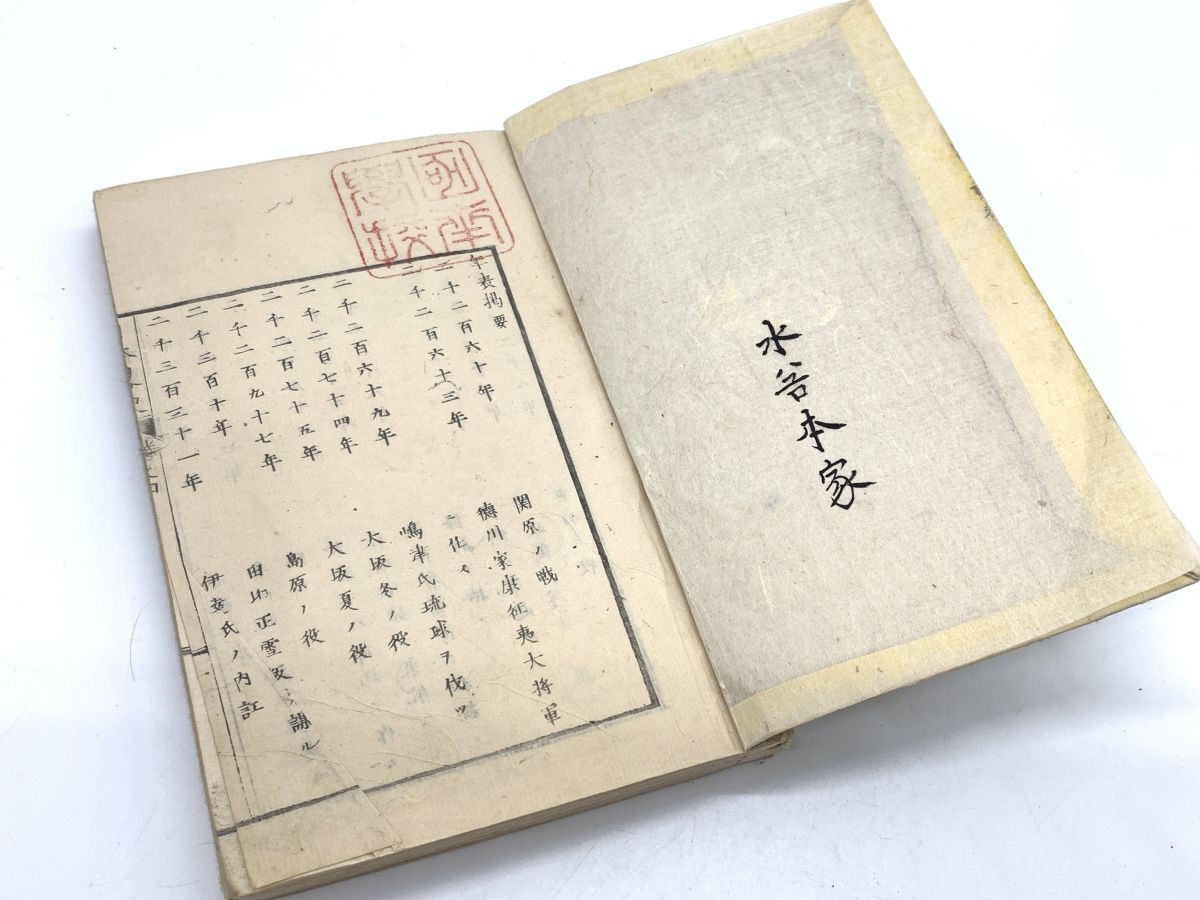 水谷本家
年表掲要
二千二百六十年 関原ノ戦
二千二百六十三年 徳川家康征夷大将軍
ニ任ス
二千二百六十九年 嶋津氏琉球ヲ伐ツ
二千二百七十四年 大坂冬ノ役
二千二百七十五年 大坂夏ノ役
二千二百九十七年 島原ノ役
二千三百十年 由井正雪反ヲ謀ル
二千三百三十一年 伊達氏ノ内訌
學校